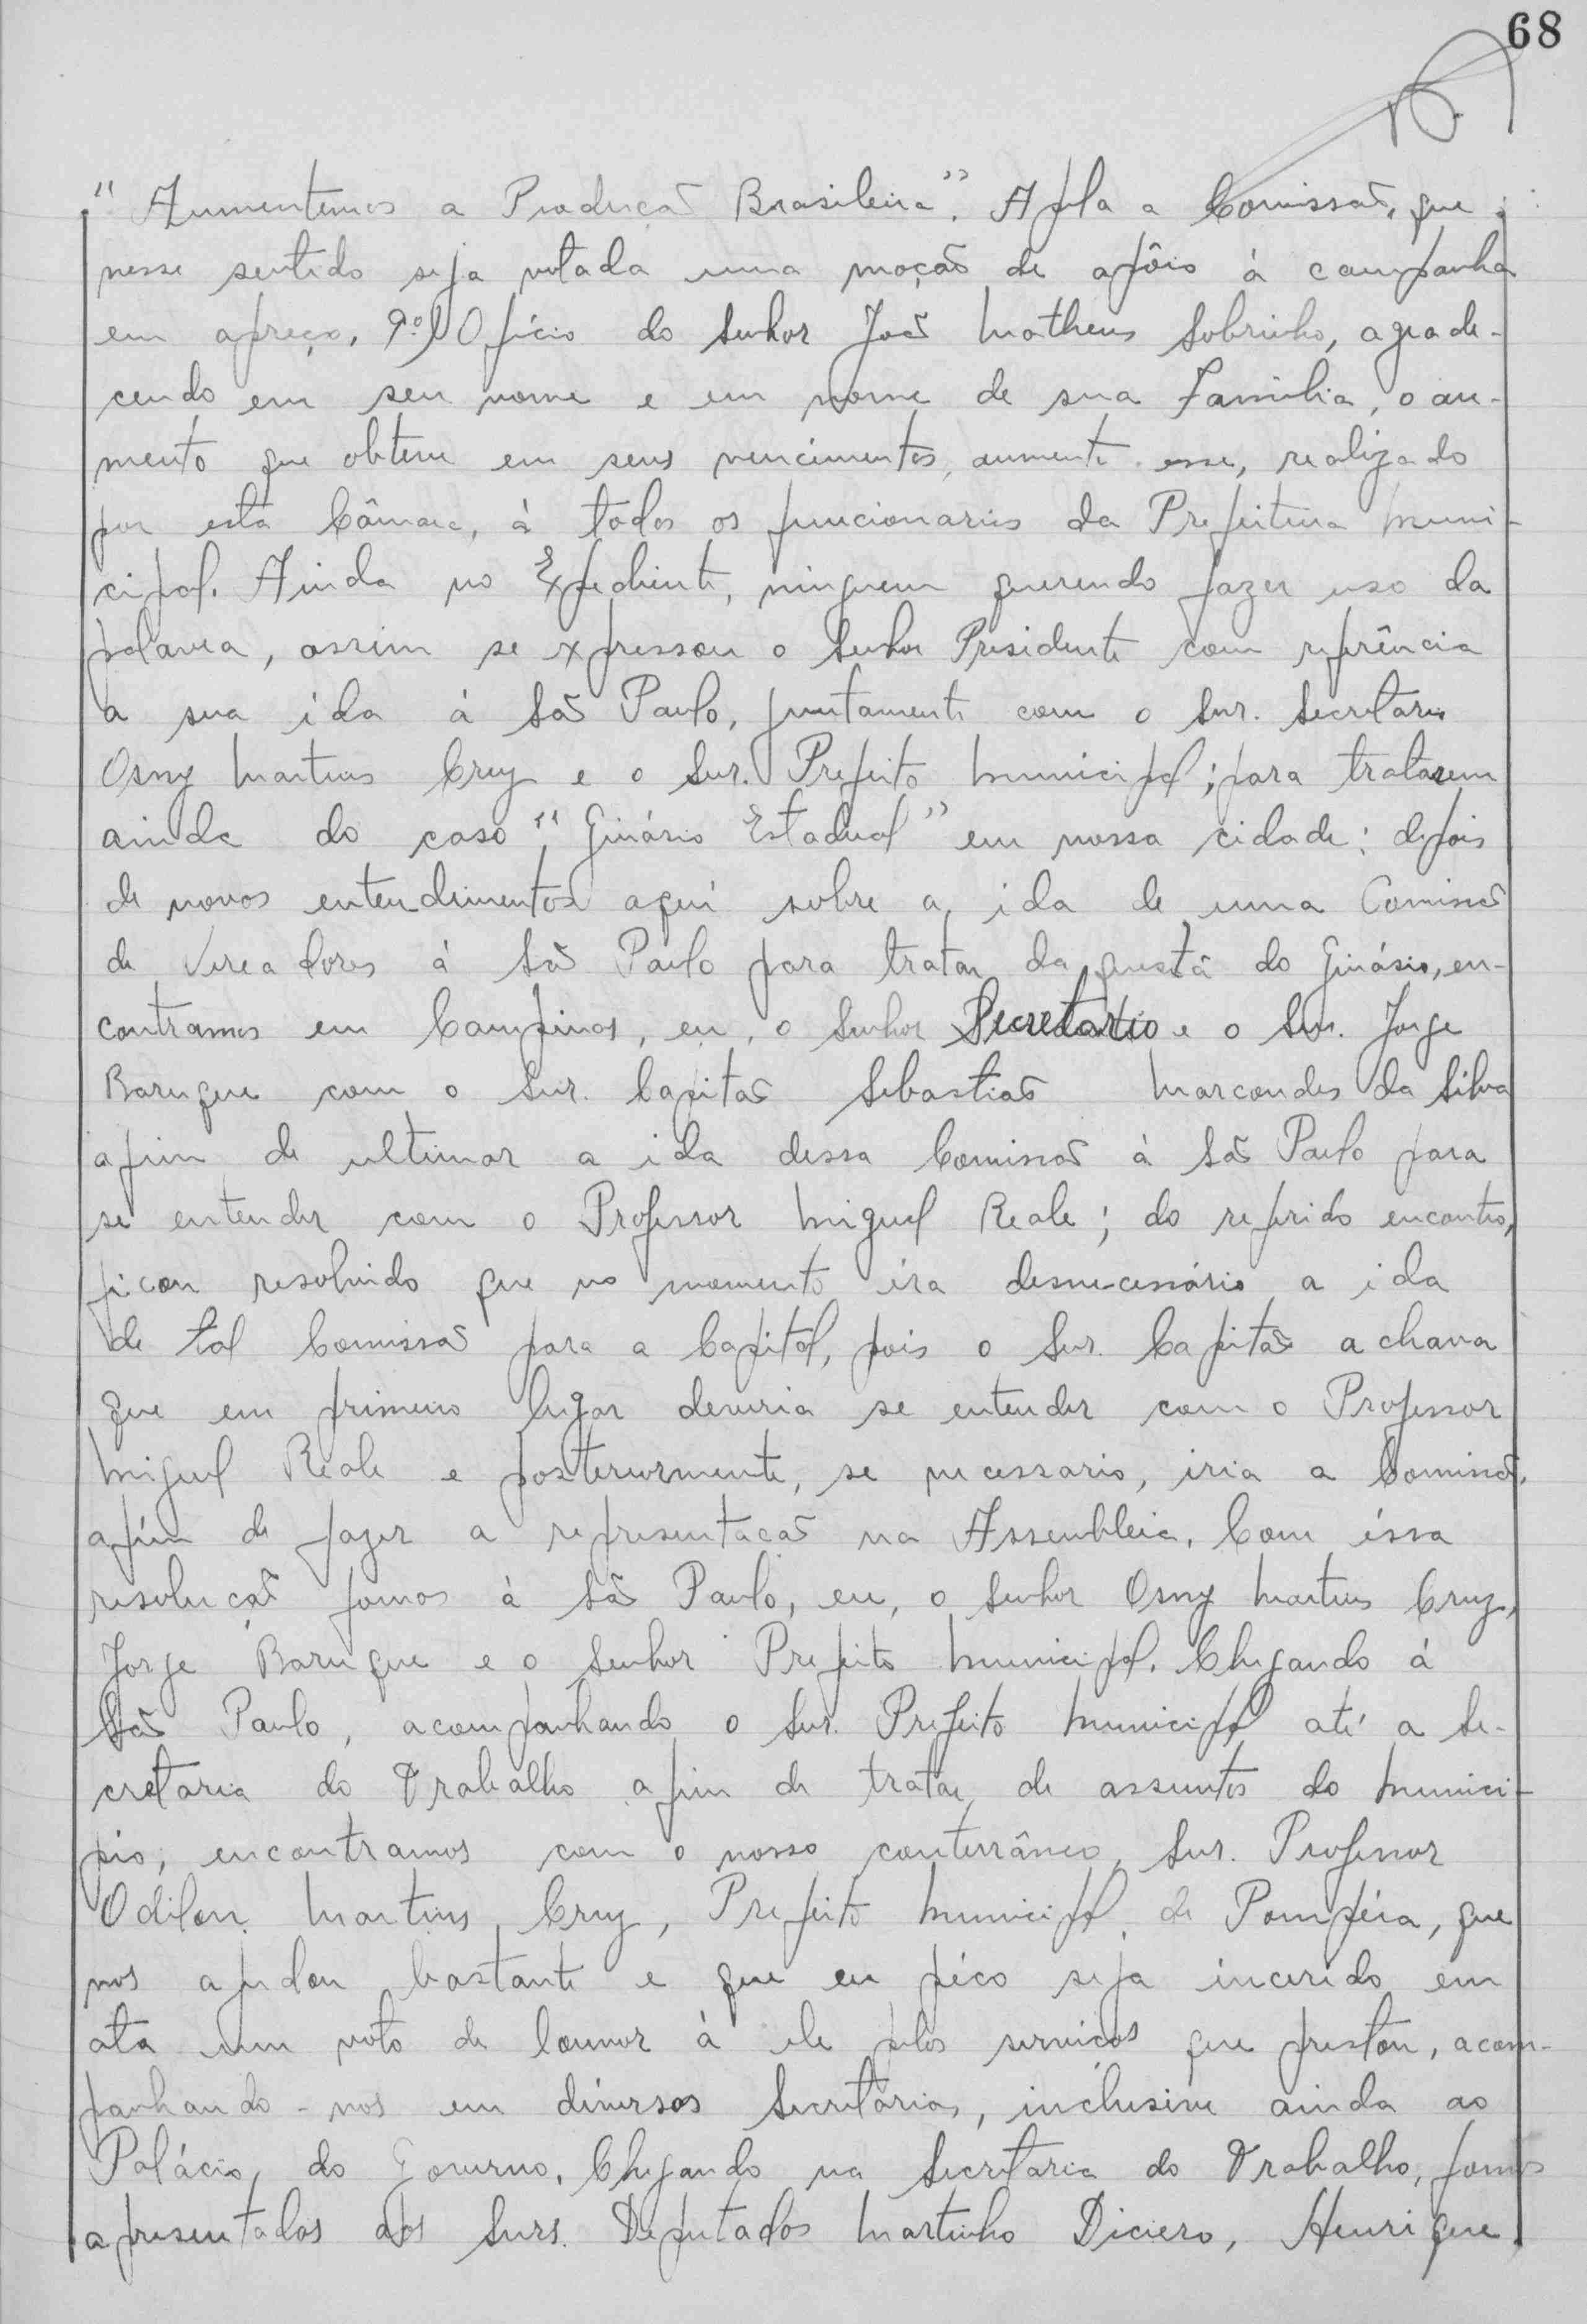 68
"Aumentemos a Produção Brasileira". Apla a Comissão, que
nesse sentido seja votada uma moção de apôio à campanha
em apreço. 9º) Ofício do Senhor João Matheus Sobrinho, agrade-
cendo em seu nome e em nome de sua Familia, o au-
mento que obteve em seus vencimentos, aumento esse, realizado
por esta Câmara, à todos os funcionarios da Prefeitura Muni-
cipal. Ainda no Expediente, ninguem querendo fazer uso da
palavra, assim se expressou o Senhor Presidente com referência
a sua ída à São Paulo, juntamente com o Snr. Secretario
Osny Martins Cruz e o Snr. Prefeito Municipal; para tratarem
ainda do caso "Ginásio Estadual" em nossa cidade: depois
de novos entendimentos aqui sobre a ida de uma Comissão
de Vereadores à São Paulo para tratar da questã do Ginásio, en-
contramos em Campinas, eu, o Senhor Secretario e o Snr. Jorge
Baruque com o Snr. Capitão Sebastião Marcondes da Silva
afim de ultimar a ida dessa Comissão à São Paulo para
se entender com o Professor Miguel Reale; do referido encontro,
ficou resolvido que no momento éra desnecessário a ida
de tal Comissão para a Capital, pois o Snr. Capitão achava
que em primeiro lugar deveria se entender com o Professor
Miguel Reale e posteriormente, se necessario, iria a Comissão,
afim de fazer a representação na Assembleia. Com éssa
resolução fomos à São Paulo, eu, o Senhor Osny Martins Cruz,
Jorge Baruque e o Senhor Prefeito Municipal. Chegando à
São Paulo, acompanhando o Snr. Prefeito Municipal até a Se-
cretaria do Trabalho afim de tratar de assuntos do Munici-
pio, encontramos com o nosso conterrâneo, Snr. Professor
Odilon Martins Cruz, Prefeito Municipal de Pompéia, que
nos ajudou bastante e que eu péço seja incerido em
ata um voto de louvor à ele pelos serviços que prestou, acom-
panhando-nos em diversas Secretarias, inclusive ainda ao
Palácio do Governo. Chegando na Secretaria do Trabalho, fomos
apresentados aos Snrs. Deputados Martinho Diciero, Henrique